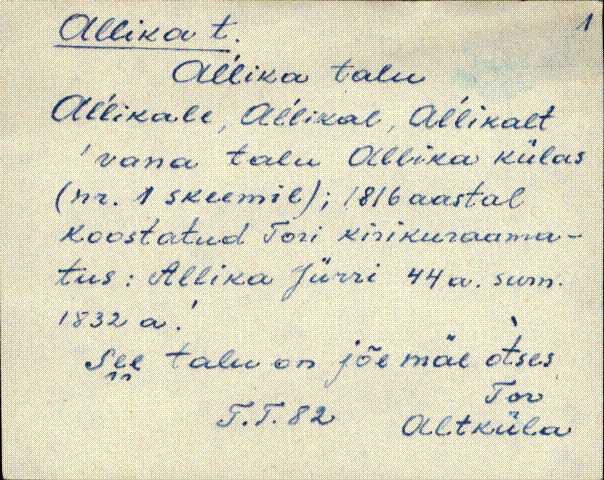 Allika t. 1
Al'lika talu
Al'likale, Al'likal, Al'likalt
'vana talu Allika külas
(nr. 1 skeemil); 1816 aastal
koostatud Tori kirikuraama-
tus: Allika Jürri 44 a. surn.
1832 a.'
See talu on jõe mäe òtses
Tor
T.T. 82 Altküla